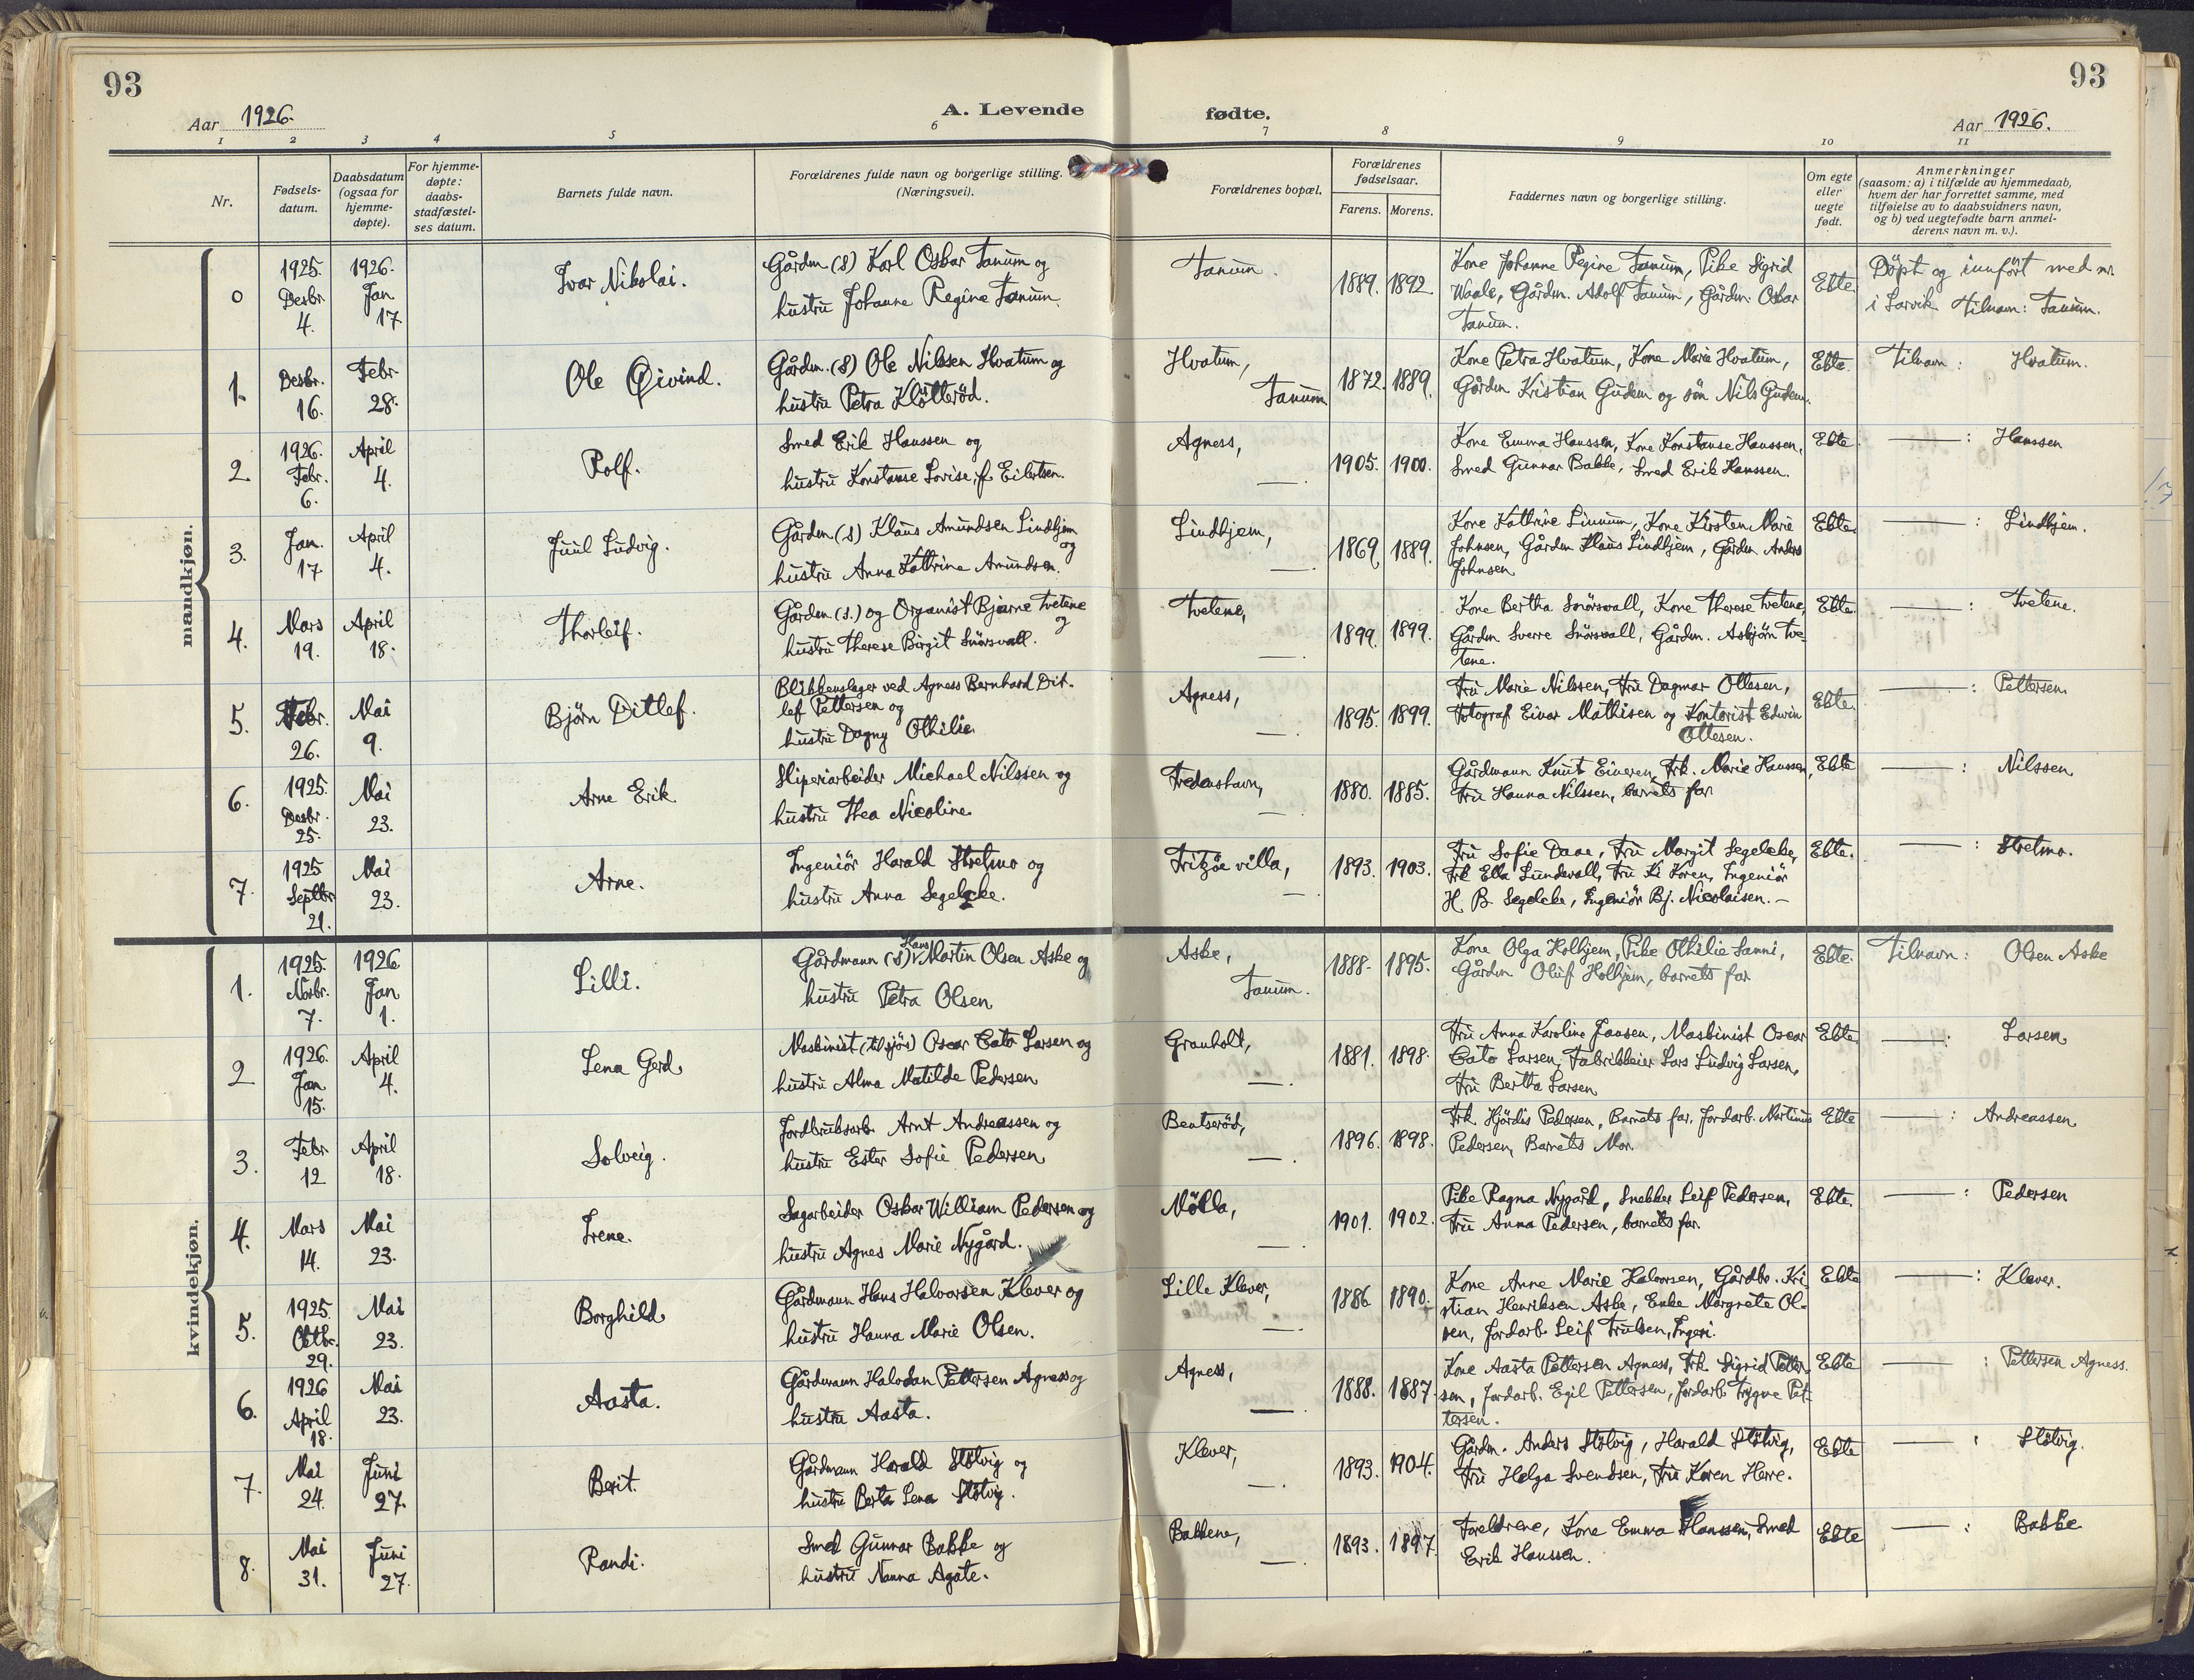 93
93
Aar 1926.
A. Levende
fødte.
Aar 1926.
1 2 3 4 5 6 7 8 9 10 11
Nr.
Fødsels-
datum.
Daabsdatum
(ogsaa for
hjemme-
døpte).
For hjemme-
døpte:
daabs-
stadfæstel-
ses datum.
Barnets fulde navn.
Forældrenes fulde navn og borgerlige stilling.
(Næringsvei).
Forældrenes bopæl.
Forældrenes
fødselsaar.
Farens. Morens.
Faddernes navn og borgerlige stilling.
Om egte
eller
uegte
født.
Anmerkninger
(saasom: a) i tilfælde av hjemmedaab,
hvem der har forrettet samme, med
tilføielse av to daabsvidners navn,
og b) ved uegtefødte barn anmel-
derens navn m. v.).
mandkjøn.
0
1925.
Desbr
4.
1926.
Jan
17
Ivar Nikolai.
Gårdm (S) Karl Oskar Tanum og
hustru Johanne Regine Tanum.
Tanum.
1889. 1892.
Kone Johanne Regine Tanum, Pike Sigrid
Waale, Gårdm. Adolf Tanum, Gårdm. Oskar
Tanum.
Ekte.
Döpt og innført med nr.
i Larvik. Tilnavn: Tanum.
1.
Desbr.
16.
Febr
28.
Ole Øivind.
Gårdm. (S) Ole Nilssen Hvatum og
hustru Petra Klötteröd.
Hvatum,
Tanum
1872. 1889.
Kone Petra Hvatum, Kone Marie Hvatum,
Gårdm Kristian Gudem og søn Nils Gudem.
Ekte.
Tilnavn: Hvatum.
2.
1926.
Febr.
6.
April
4.
Rolf.
Smed Erik Hanssen og
hustru Konstanse Lovise, f. Eilertsen.
Agness,
—
1905. 1900.
Kone Emma Hanssen, Kone Konstanse Hanssen,
Smed Gunnar Bakke, Smed Erik Hanssen.
Ekte
— : Hanssen
3.
Jan.
17
April
4.
Juul Ludvig.
Gårdm (S) Klaus Amundsen Lindhjem
og
hustru Anna Kathrine Amundsen.
Lindhjem,
—
1869 1889.
Kone Kathrine Linnum, Kone Kirsten Marie
Johnsen, Gårdm Klaus Lindhjem, Gårdm Anders
Johnsen
Ekte.
— : Lindhjem.
4.
Mars
19.
April
18.
Thorleif.
Gårdm (S.) og Organist Bjarne Tvetene
og
hustru Therese Birgit Snörsvall.
Tvetene,
—
1899. 1899.
Kone Bertha Snörsvall, Kone Therese Tvetene,
Gårdm Sverre Snörsvall, Gårdm. Asbjörn Tve-
tene.
Ekte.
— : Tvetene.
5.
Febr.
26.
Mai
9.
Björn Ditlef.
Blikkenslager ved Agness Bernhard Dit-
lef Pettersen og
hustru Dagny Othilie
Agness,
—
1895. 1899.
Fru Marie Nilssen, Fru Dagmar Ottesen,
Fotograf Einar Mathisen og Kontorist Edwin
Ottesen.
Ekte.
— : Pettersen.
6.
1925.
Desbr.
25.
Mai
23.
Arne Erik
Sliperiarbeider Michael Nilssen og
hustru Thea Nicoline.
Fredenshavn,
—
1880. 1885.
Gårdmann Knut Eineren, Frk. Marie Hanssen,
Fru Hanna Nilssen, barnets far
Ekte
— : Nilssen
7.
1925
Septbr
21.
Mai
23.
Arne.
Ingeniör Harald Stretmo og
hustru Anna Segelcke.
Fritzöe villa,
—
1893. 1903.
Fru Sofie Daae, Fru Margit Segelcke,
Frk Ella Lundevall, Fru Ki Koren, Ingeniör
H. B. Segelcke, Ingeniör Bj. Nicolaisen. –
Ekte.
— : Stretmo.
kvindekjøn.
1.
1925.
Novbr.
7.
1926
Jan
1.
Lilli.
Hans
Gårdmann (S) Martin Olsen Aske og
hustru Petra Olsen
Aske,
Tanum.
1888. 1895.
Kone Olga Holhjem, Pike Othilie Sanni,
Gårdm Oluf Holhjem, barnets far
Ekte.
Tilnavn: Olsen Aske
2
1926.
Jan
15.
April
4.
Lena Gerd
Maskinist (tilsjös) Oscar Cato Larsen og
hustru Alma Matilde Pedersen
Granholt,
—
1881. 1898.
Fru Anna Karoline Jansen, Maskinist Oscar
Cato Larsen, Fabrikkeier Lars Ludvig Larsen,
Fru Bertha Larsen
Ekte
— : Larsen
3.
Febr
12
April
18.
Solveig.
Jordbruksarb. Arnt Andreassen og
hustru Ester Sofie Pedersen
Bentseröd,
—
1896. 1898.
Frk Hjördis Pedersen, Barnets far, Jordarb. Martinius
Pedersen, Barnets Mor.
Ekte
— : Andreassen
4.
Mars
14.
Mai
23.
Irene.
Sagarbeider Oskar William Pedersen og
hustru Agnes Marie Nygård.
Mölla,
—
1901. 1902.
Pike Ragna Nygård, Snekker Leif Pedersen,
Fru Anna Pedersen, barnets far
Ekte.
— : Pedersen
5.
1925.
Oktbr.
29.
Mai
23.
Borghild
Gårdmann Hans Halvorsen Klever og
hustru Hanna Marie Olsen.
Lille Klever,
—
1886 1890.
Kone Anne Marie Halvorsen, Gårdbr. Kri-
stian Henriksen Aske, Enke Margrete Ol-
sen, Jordarb. Leif Trulsen,
Ekte
— : Klever.
6.
1926
April
18.
Mai
23.
Aasta.
Gårdmann Halvdan Pettersen Agness og
hustru Aasta.
Agness,
—
1888. 1887.
Kone Aasta Pettersen Agness, Frk. Sigrid Petter-
sen, Jordarb. Egil Pettersen, Jordarb. Trygve Pet-
tersen.
Ekte
— : Pettersen Agness.
7.
Mai
24.
Juni
27.
Berit.
Gårdmann Harald Stölvig og
hustru Berta Lena Stölvig.
Klever,
—
1893. 1904.
Gårdm. Anders Stölvig, Harald Stölvig,
Fru Helga Svendsen, Fru Karen Herre.
Ekte
— : Stölvig.
8.
Mai
31.
Juni
27.
Randi.
Smed Gunnar Bakke og
hustru Nanna Agate.
Bakkene,
—
1893. 1897.
Foreldrene, Kone Emma Hanssen, Smed
Erik Hanssen.
Ekte
— : Bakke